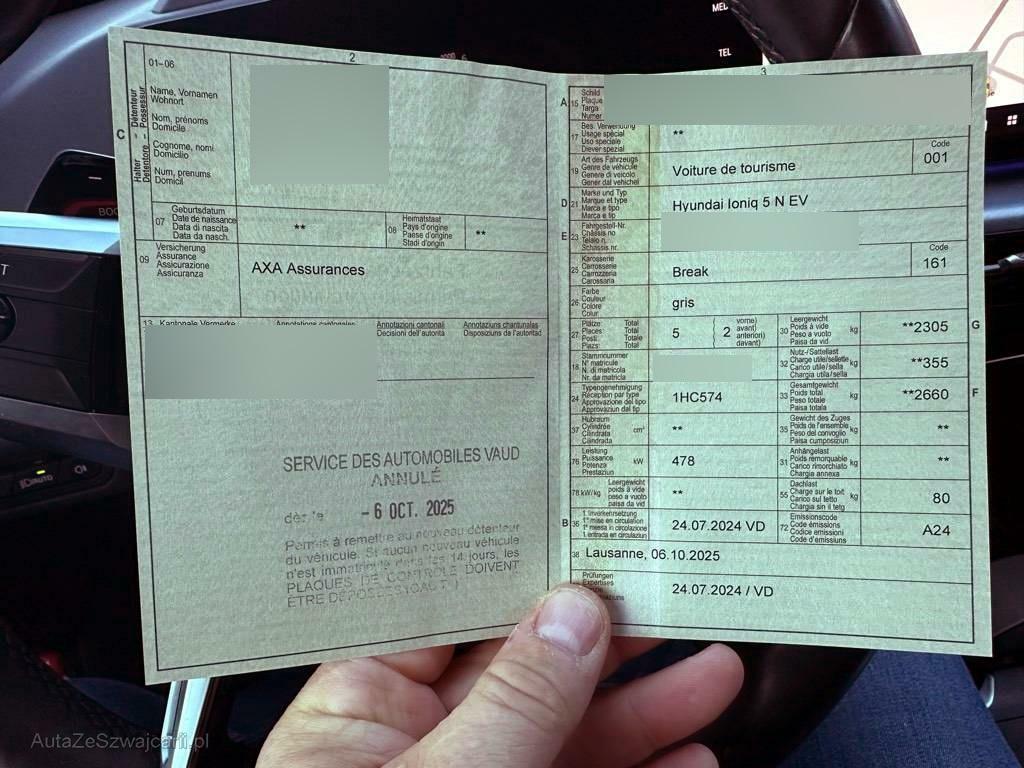 MED
TEL
2
01–06
C
Halter Détenteur
Detentore Possessur
Name, Vornamen
Wohnort
Nom, prénoms
Domicile
Cognome, nomi
Domicilio
Num, prenums
Domicil
07
Geburtsdatum
Date de naissance
Data di nascita
Data da nasch.
**
08
Heimatstaat
Pays d'origine
Paese d'origine
Stadi d'origin
**
09
Versicherung
Assurance
Assicurazione
Assicuranza
AXA Assurances
13 Kantonale Vermerke
Annotations cantonales
Annotazioni cantonali
Decisioni dell'autorità
Annotaziuns chantunalas
Disposiziuns da l'autoritad
SERVICE DES AUTOMOBILES VAUD
ANNULÉ
dès le - 6 OCT. 2025
Permis à remettre au nouveau détenteur
du véhicule. Si aucun nouveau véhicule
n'est immatriculé dans les 14 jours, les
PLAQUES DE CONTRÔLE DOIVENT
ÊTRE DÉPOSÉES
3
A 15
Schild
Plaque
Targa
Numer
17
Bes. Verwendung
Usage spécial
Uso speciale
Diever spezial
**
19
Art des Fahrzeugs
Genre de véhicule
Genere di veicolo
Gener dal vehichel
Voiture de tourisme
Code
001
D 21
Marke und Typ
Marque et type
Marca e tipo
Marca e tip
Hyundai Ioniq 5 N EV
E 23
Fahrgestell-Nr.
Châssis no
Telaio n.
Schassis nr.
25
Karosserie
Carrosserie
Carrozzeria
Carossaria
Break
Code
161
26
Farbe
Couleur
Colore
Colur
gris
27
Plätze Total
Places: Total
Posti: Totale
Plazs: Total
5
2
vorne)
avant)
anteriori)
davant)
30
Leergewicht
Poids à vide
Peso a vuoto
Paisa da vid
kg
**2305
G
18
Stammnummer
N° matricule
N. di matricola
Nr. da matricla
32
Nutz-/Sattellast
Charge utile/sellette
Carico utile/sella
Chargia utila/sella
kg
**355
24
Typengenehmigung
Réception par type
Approvazione del tipo
Approvaziun dal tip
1HC574
33
Gesamtgewicht
Poids total
Peso totale
Paisa totala
kg
**2660
F
37
Hubraum
Cylindrée
Cilindrata
Cilindrada
cm³
**
35
Gewicht des Zuges
Poids de l'ensemble
Peso del convoglio
Paisa cumposiziun
kg
**
76
Leistung
Puissance
Potenza
Prestaziun
kW
478
31
Anhängelast
Poids remorquable
Carico rimorchiato
Chargia annexa
kg
**
78 kW/kg
Leergewicht
poids à vide
peso a vuoto
paisa da vid
**
55
Dachlast
Charge sur le toit
Carico sul tetto
Chargia sin il tetg
kg
80
B 36
1. Inverkehrsetzung
1re mise en circulation
1a messa in circolazione
1. entrada en circulaziun
24.07.2024 VD
72
Emissionscode
Code émissions
Codice emissioni
Code d'emissiuns
A24
38 Lausanne, 06.10.2025
Prüfungen
Expertises
24.07.2024 / VD
AUTO
AutaZeSzwajcarii.pl